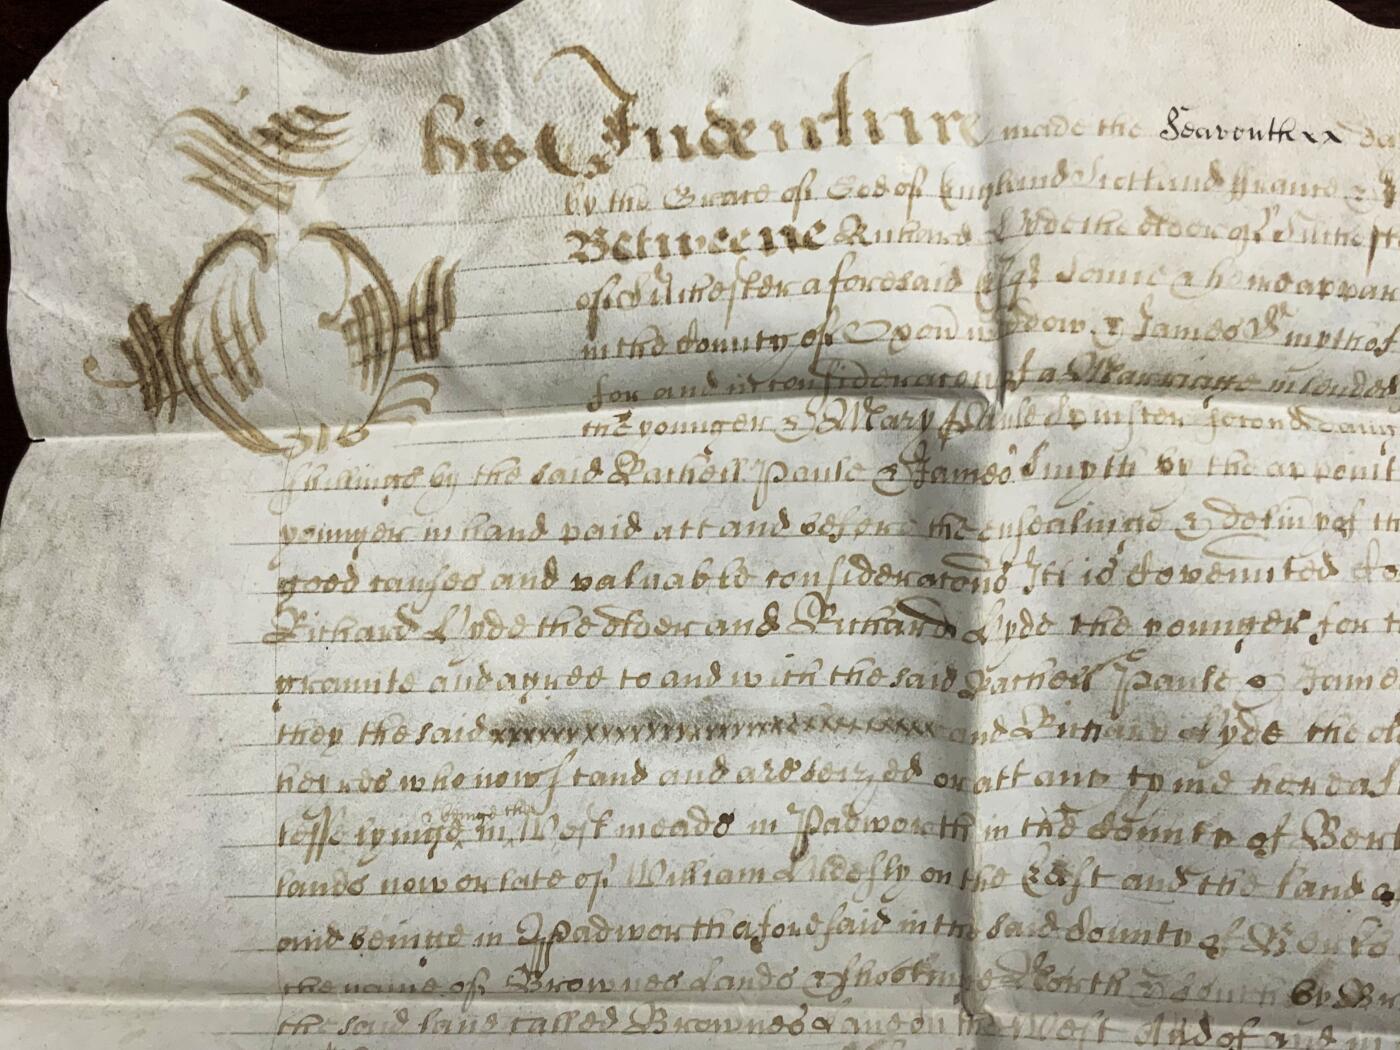 This Indenture made the Seaventh xx da
by the Grace of God of England Scotland France &
Betweene Richard Lyde the elder of
of aforesaid Esqr sonne & heire appar
in the County of Oxon widow & James Smyth of
for and in consideracon of a Marriage intended
the younger & Mary Paule Spinster second daug
shillings by the said Rachell Paule & James Smyth by the appoint
younger in hand paid att and before the ensealinge & delivy of th
good causes and valuable consideracons Itt is Covenнted
Richard Lyde the elder and Richard Lyde the younger for t
graunte and agree to and with the said Rachell Paule & Jame
they the said xxxxxxxxxxxxxxxxxxxxxxxx and Richard Lyde the el
heires who now stand and are seized or att any tyme hereaf
lesse lyinge & beinge in the West meade in Padworth in the County of Berk
lands now or late of William on the East and the land
and beinge in Padworth aforesaid in the said County of Berks
the name of Brownes Lands & shootinge North & South by Br
the said land called Brownes Land on the West And of and in